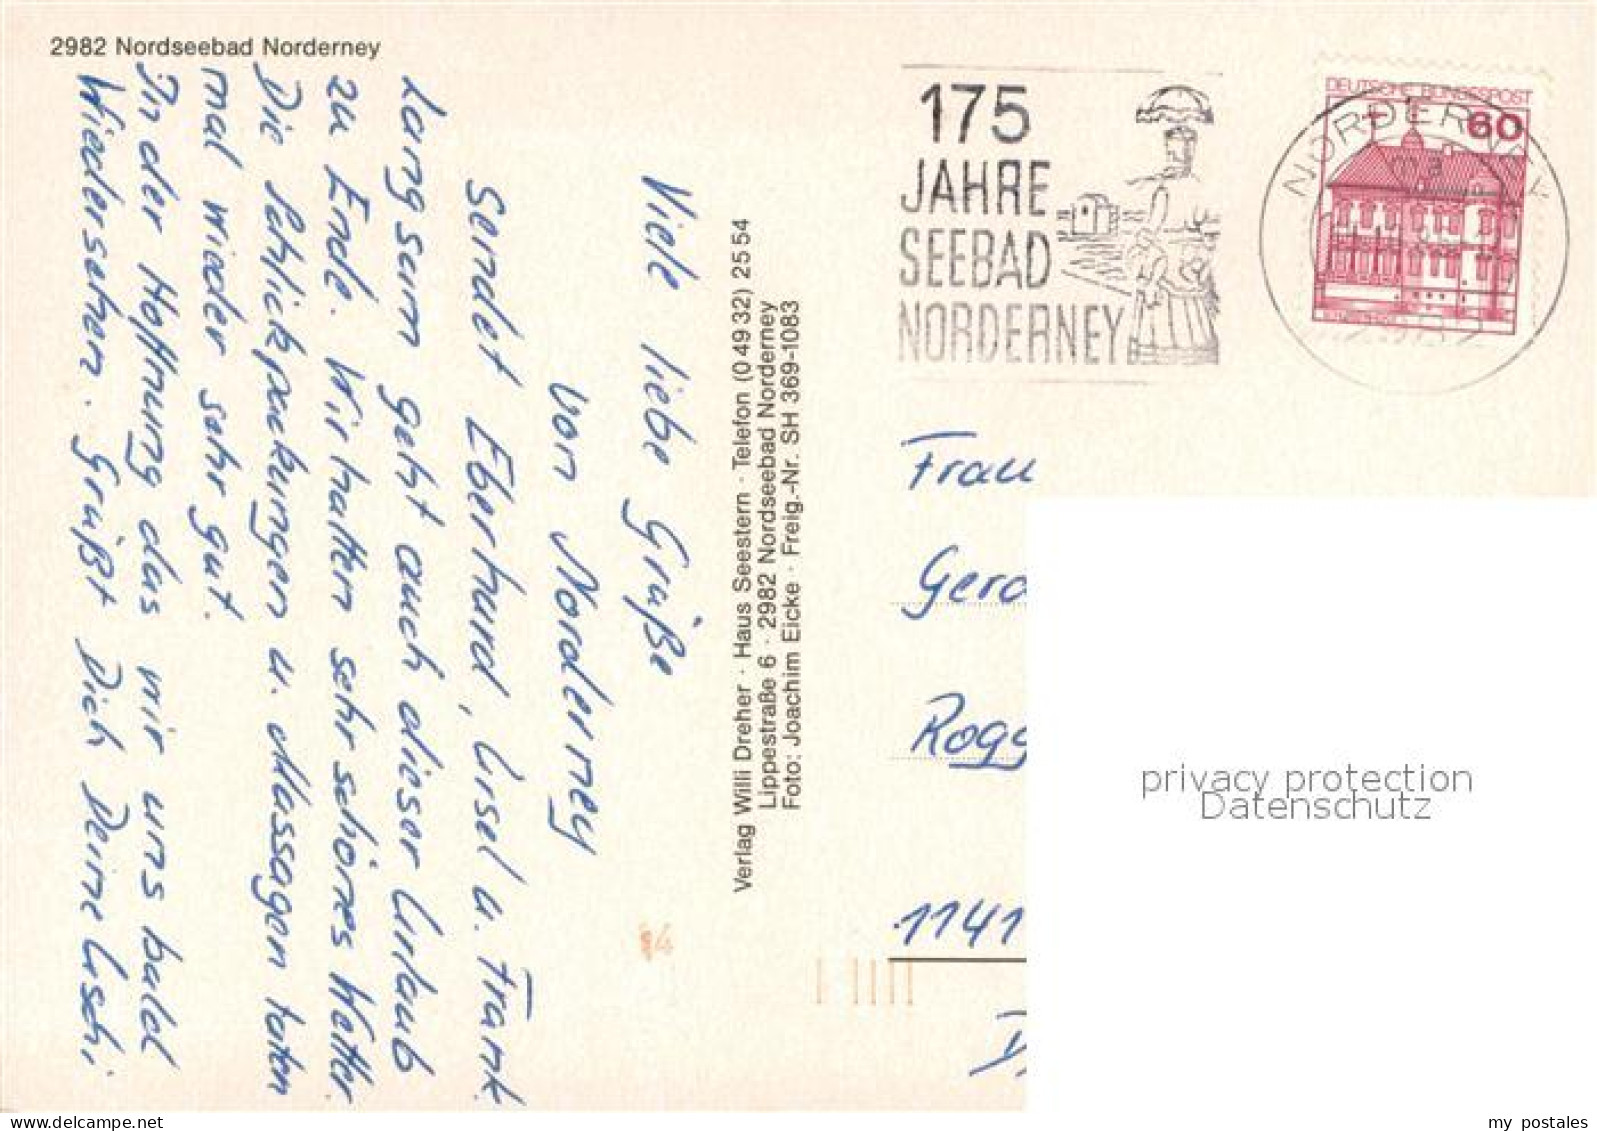 2982 Nordseebad Norderney
Viele liebe Grüße
von Norderney
sendet Eberhard, Ursel u. Frank
Langsam geht auch dieser Urlaub
zu Ende. Wir hatten sehr schönes Wetter.
Die Schlickpackungen u. Massagen taten
mal wieder sehr gut.
In der Hoffnung das wir uns bald
Wiedersehen. Grüßt Dich Deine Uschi.
Verlag Willi Dreher · Haus Seestern · Telefon (0 49 32) 25 54
Lippestraße 6 · 2982 Nordseebad Norderney
Foto: Joachim Eicke · Freig.-Nr. SH 369-1083
175
JAHRE
SEEBAD
NORDERNEY
DEUTSCHE BUNDESPOST
60
NORDERNEY
Frau
Gero
Rogg
1141
privacy protection
Datenschutz
www.delcampe.net
my_postales